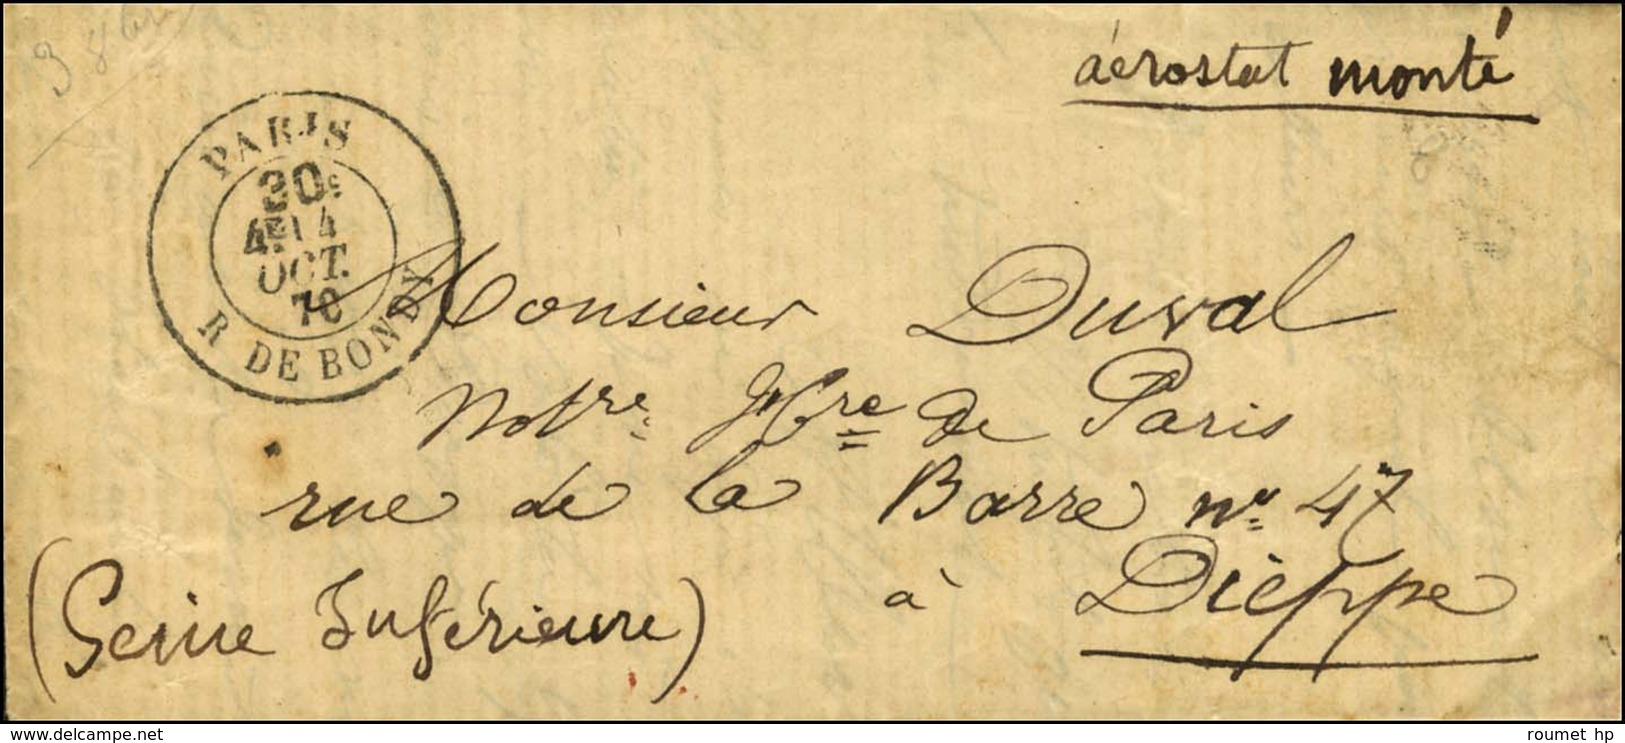 aérostat monté
PARIS
30c
4E 14
OCT.
70
R. DE BONDY
Monsieur Duval
Notre de Paris
rue de la Barre no 47
à Dieppe
(Seine Inférieure)
roumet hp
www.delcampe.net